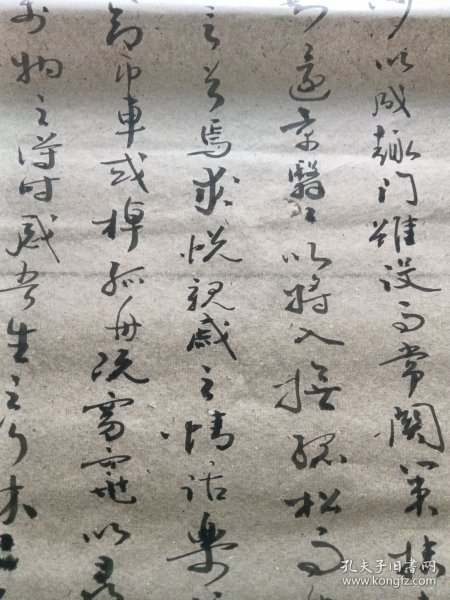 涉以成趣门雖设而常関策扶
還景翳〻以将入撫孤松而
言兮焉求悦親戚之情话樂
命巾車或棹孤舟既窈窕以尋
萬物之得时感吾生之行休
孔夫子旧书网
www.kongfz.com